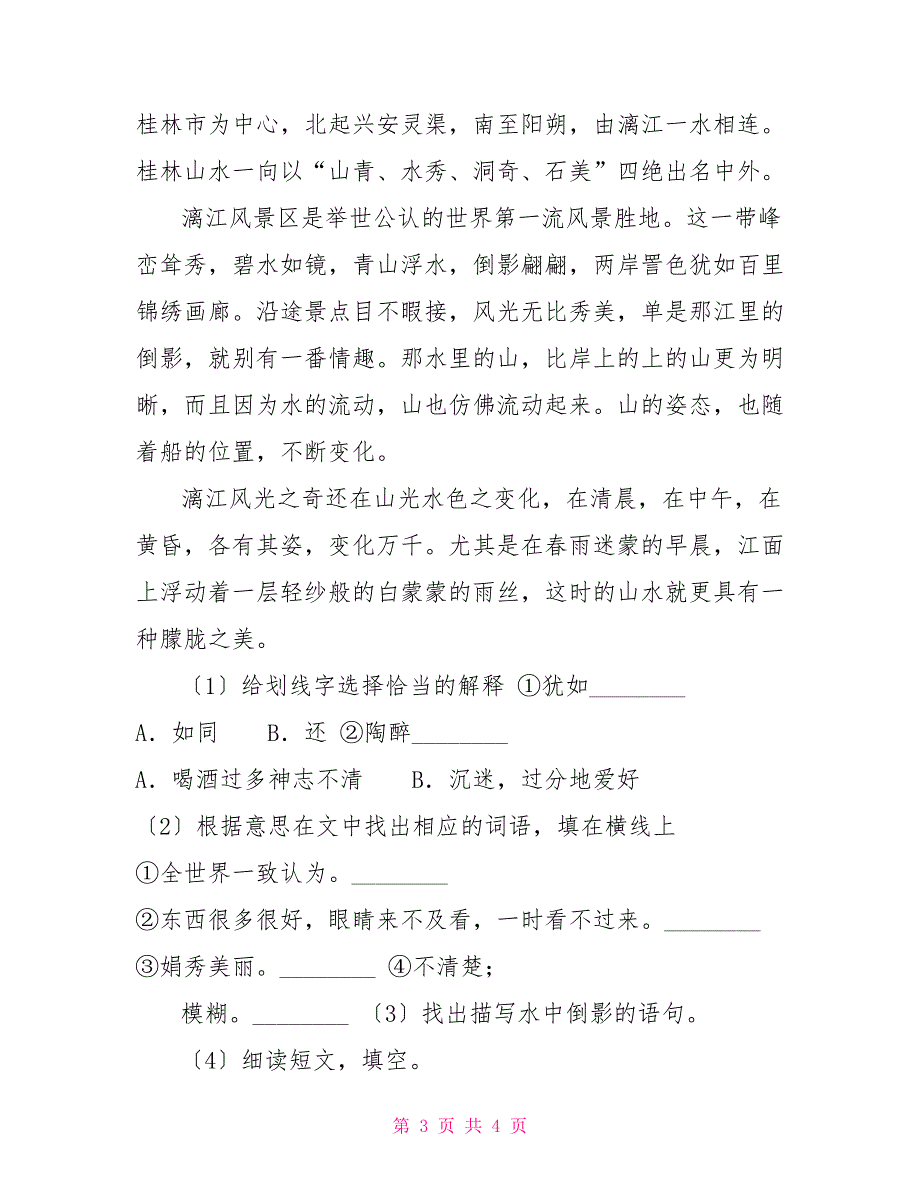 桂林市为中心，北起兴安灵渠，南至阳朔，由漓江一水相连。
桂林山水一向以“山青、水秀、洞奇、石美”四绝出名中外。
漓江风景区是举世公认的世界第一流风景胜地。这一带峰
峦耸秀，碧水如镜，青山浮水，倒影翩翩，两岸詈色犹如百里
锦绣画廊。沿途景点目不暇接，风光无比秀美，单是那江里的
倒影，就别有一番情趣。那水里的山，比岸上的上的山更为明
晰，而且因为水的流动，山也仿佛流动起来。山的姿态，也随
着船的位置，不断变化。
漓江风光之奇还在山光水色之变化，在清晨，在中午，在
黄昏，各有其姿，变化万千。尤其是在春雨迷蒙的早晨，江面
上浮动着一层轻纱般的白蒙蒙的雨丝，这时的山水就更具有一
种朦胧之美。
〔1〕给划线字选择恰当的解释 ①犹如________
A．如同　　B．还 ②陶醉________
A．喝酒过多神志不清　　B．沉迷，过分地爱好
〔2〕根据意思在文中找出相应的词语，填在横线上
①全世界一致认为。________
②东西很多很好，眼睛来不及看，一时看不过来。________
③娟秀美丽。________ ④不清楚；
模糊。________ 〔3〕找出描写水中倒影的语句。
〔4〕细读短文，填空。
第 3 页 共 4 页